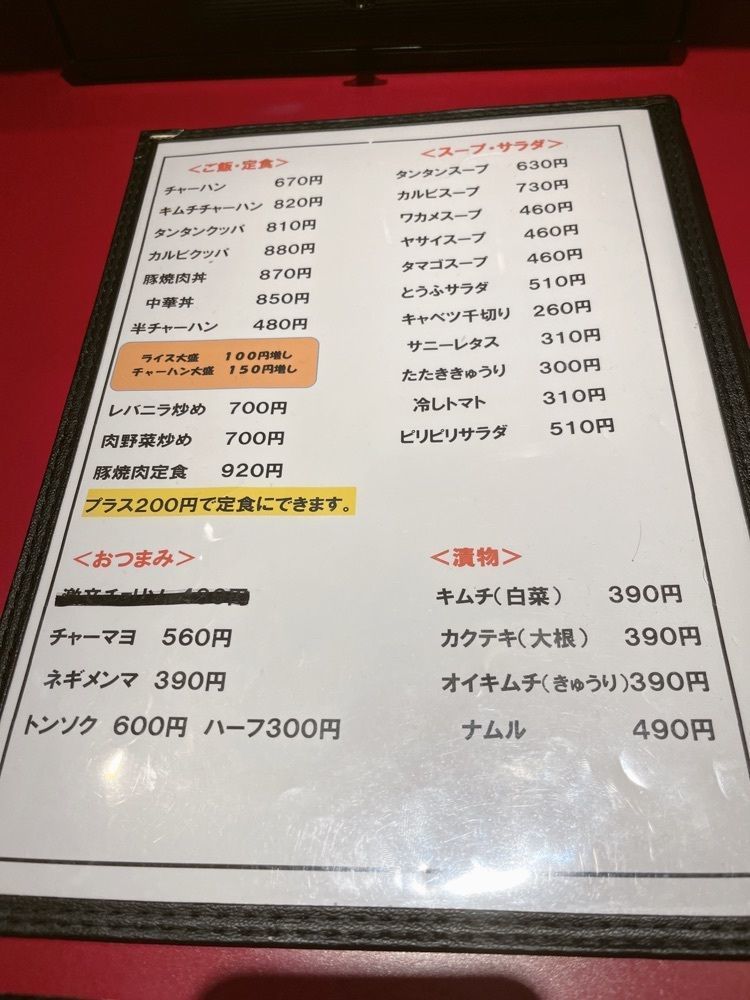 <ご飯・定食>
チャーハン 670円
キムチチャーハン 820円
タンタンクッパ 810円
カルビクッパ 880円
豚焼肉丼 870円
中華丼 850円
半チャーハン 480円
ライス大盛 100円増し
チャーハン大盛 150円増し
レバニラ炒め 700円
肉野菜炒め 700円
豚焼肉定食 920円
プラス200円で定食にできます。
<スープ・サラダ>
タンタンスープ 630円
カルビスープ 730円
ワカメスープ 460円
ヤサイスープ 460円
タマゴスープ 460円
とうふサラダ 510円
キャベツ千切り 260円
サニーレタス 310円
たたききゅうり 300円
冷しトマト 310円
ピリピリサラダ 510円
<おつまみ>
チャーマヨ 560円
ネギメンマ 390円
トンソク 600円 ハーフ300円
<漬物>
キムチ(白菜) 390円
カクテキ(大根) 390円
オイキムチ(きゅうり)390円
ナムル 490円